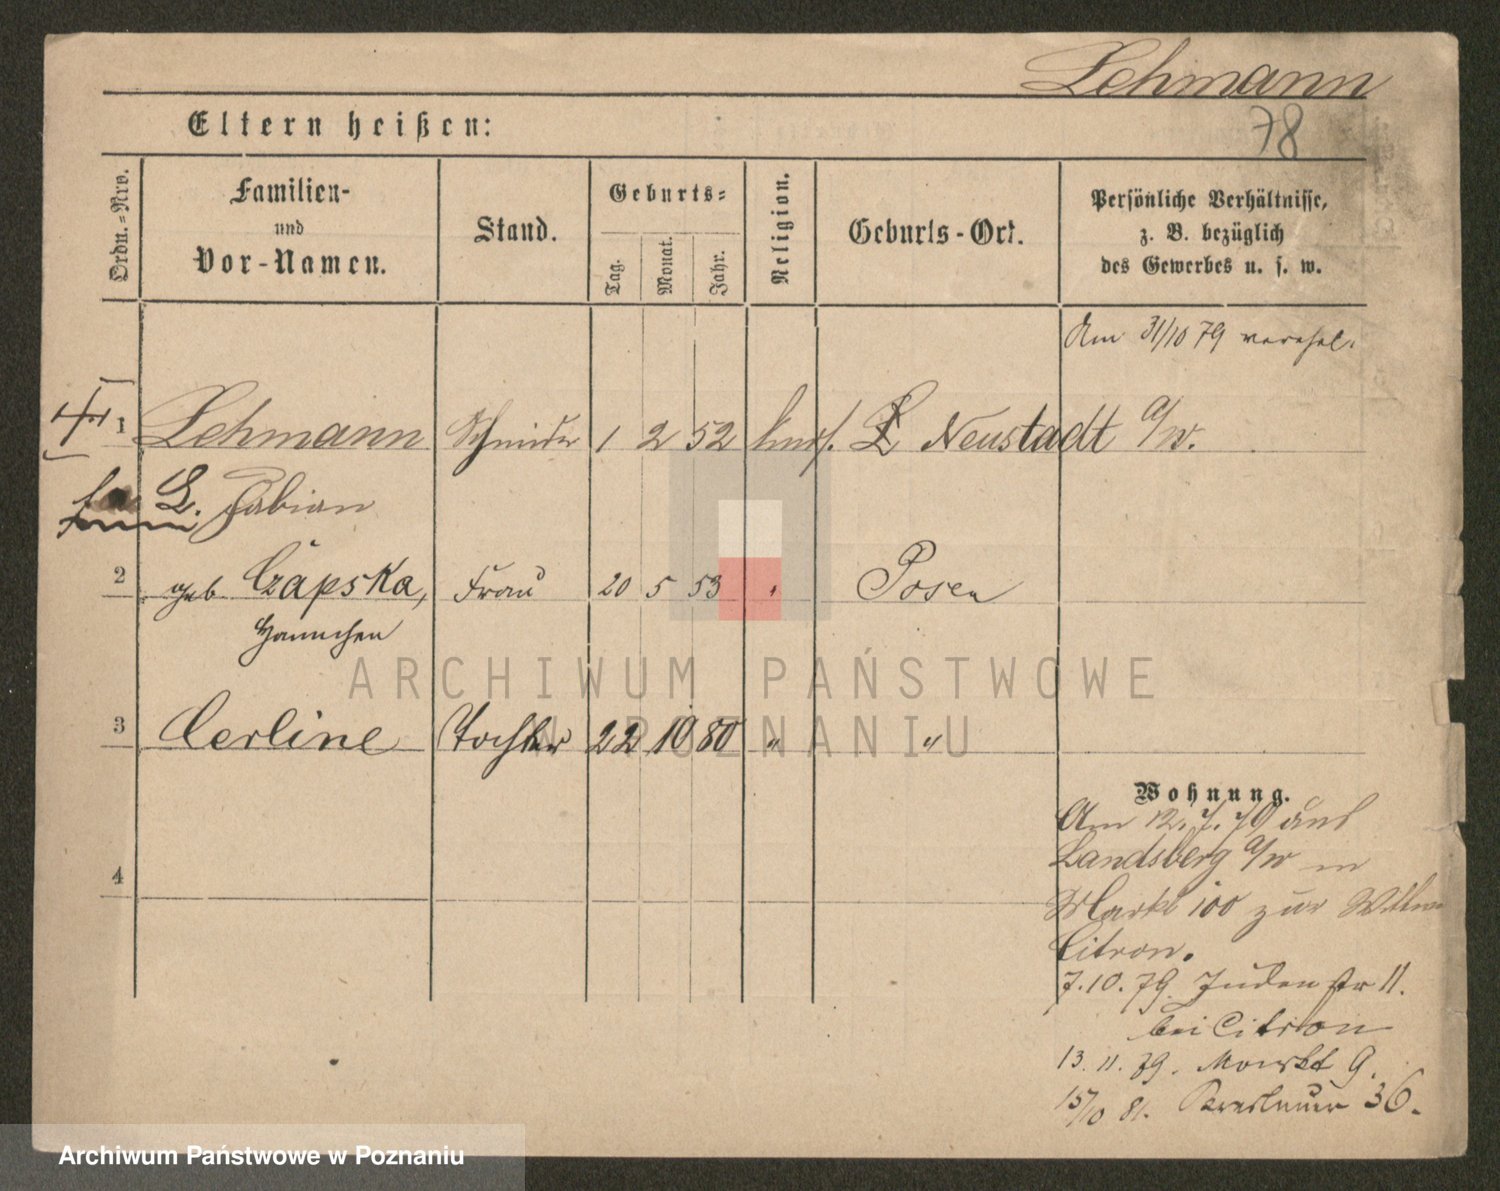 Lehmann
78
Eltern heißen:
Ordn.-Nro.
Familien-
und
Vor-Namen.
Stand.
Geburts-
Tag.
Monat.
Jahr.
Religion.
Geburts-Ort.
Persönliche Verhältnisse,
z. B. bezüglich
des Gewerbes u. s. w.
Am 31/10 79 verehel.
1 Lehmann Schneider 1 2 52 Neustadt a/w.
L. Fabian
2 geb Czapska, Frau 20 5 53 " Posen
Hannchen
3 Cerline Tochter 22 10 80 " "
Wohnung.
Am 12. 7. 79 aus
Landsberg a/w in
Markt 100 zur Wittwe
Citron.
4
7. 10. 79. Judenstr 11.
bei Citron
13. 11. 79. Markt 9.
15/10 81. Breslauer 36.
ARCHIWUM PAŃSTWOWE
W POZNANIU
Archiwum Państwowe w Poznaniu